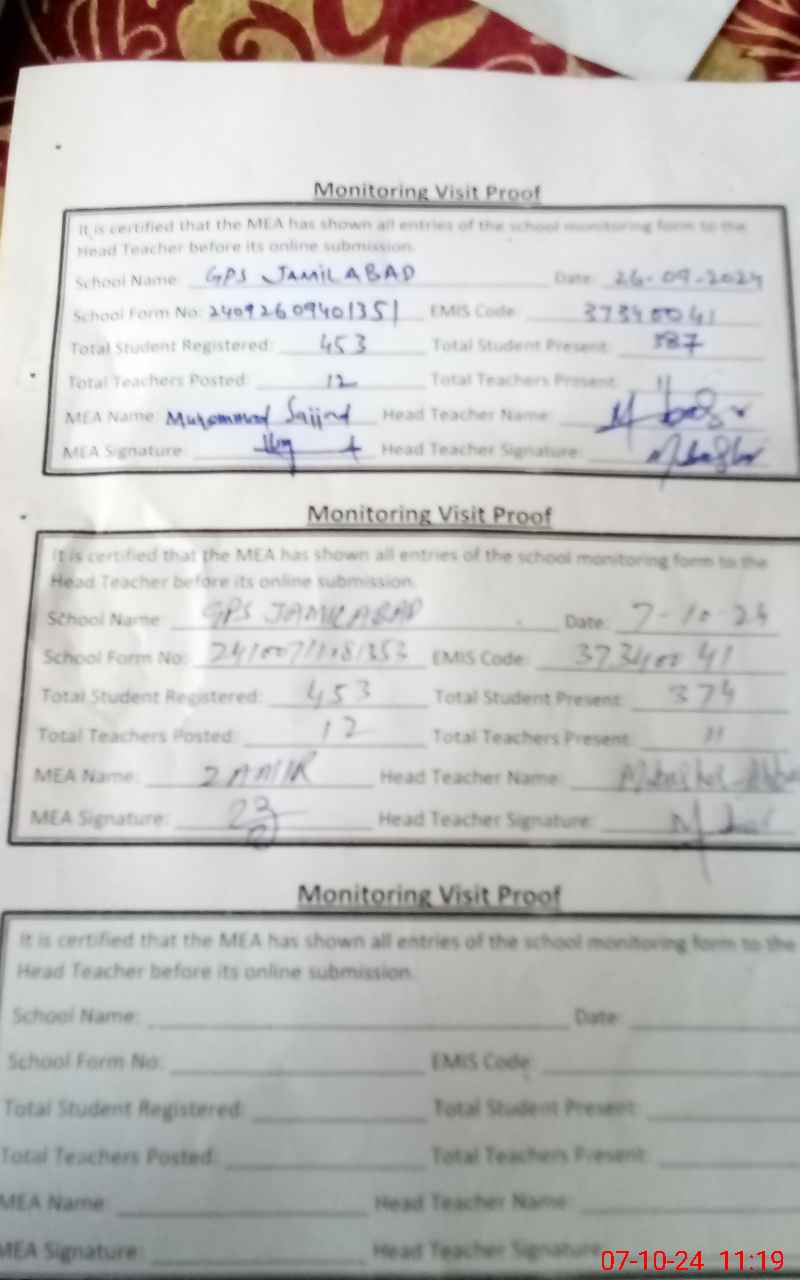 Monitoring Visit Proof
It is certified that the MEA has shown all entries of the school monitoring form to the
Head Teacher before its online submission.
School Name: GPS JAMILABAD Date: 26-09-2024
School Form No: 24092609401351 EMIS Code: 37340041
Total Student Registered: 453 Total Student Present: 387
Total Teachers Posted: 12 Total Teachers Present: 11
MEA Name: Muhammad Sajjad Head Teacher Name:
MEA Signature: Head Teacher Signature:
Monitoring Visit Proof
It is certified that the MEA has shown all entries of the school monitoring form to the
Head Teacher before its online submission.
School Name: GPS JAMILABAD Date: 7-10-24
School Form No: EMIS Code: 37340041
Total Student Registered: 453 Total Student Present: 374
Total Teachers Posted: 12 Total Teachers Present: 11
MEA Name: Head Teacher Name:
MEA Signature: Head Teacher Signature:
Monitoring Visit Proof
It is certified that the MEA has shown all entries of the school monitoring form to the
Head Teacher before its online submission.
School Name: Date:
School Form No: EMIS Code:
Total Student Registered: Total Student Present:
Total Teachers Posted: Total Teachers Present:
MEA Name: Head Teacher Name:
MEA Signature: Head Teacher Signature:
07-10-24 11:19